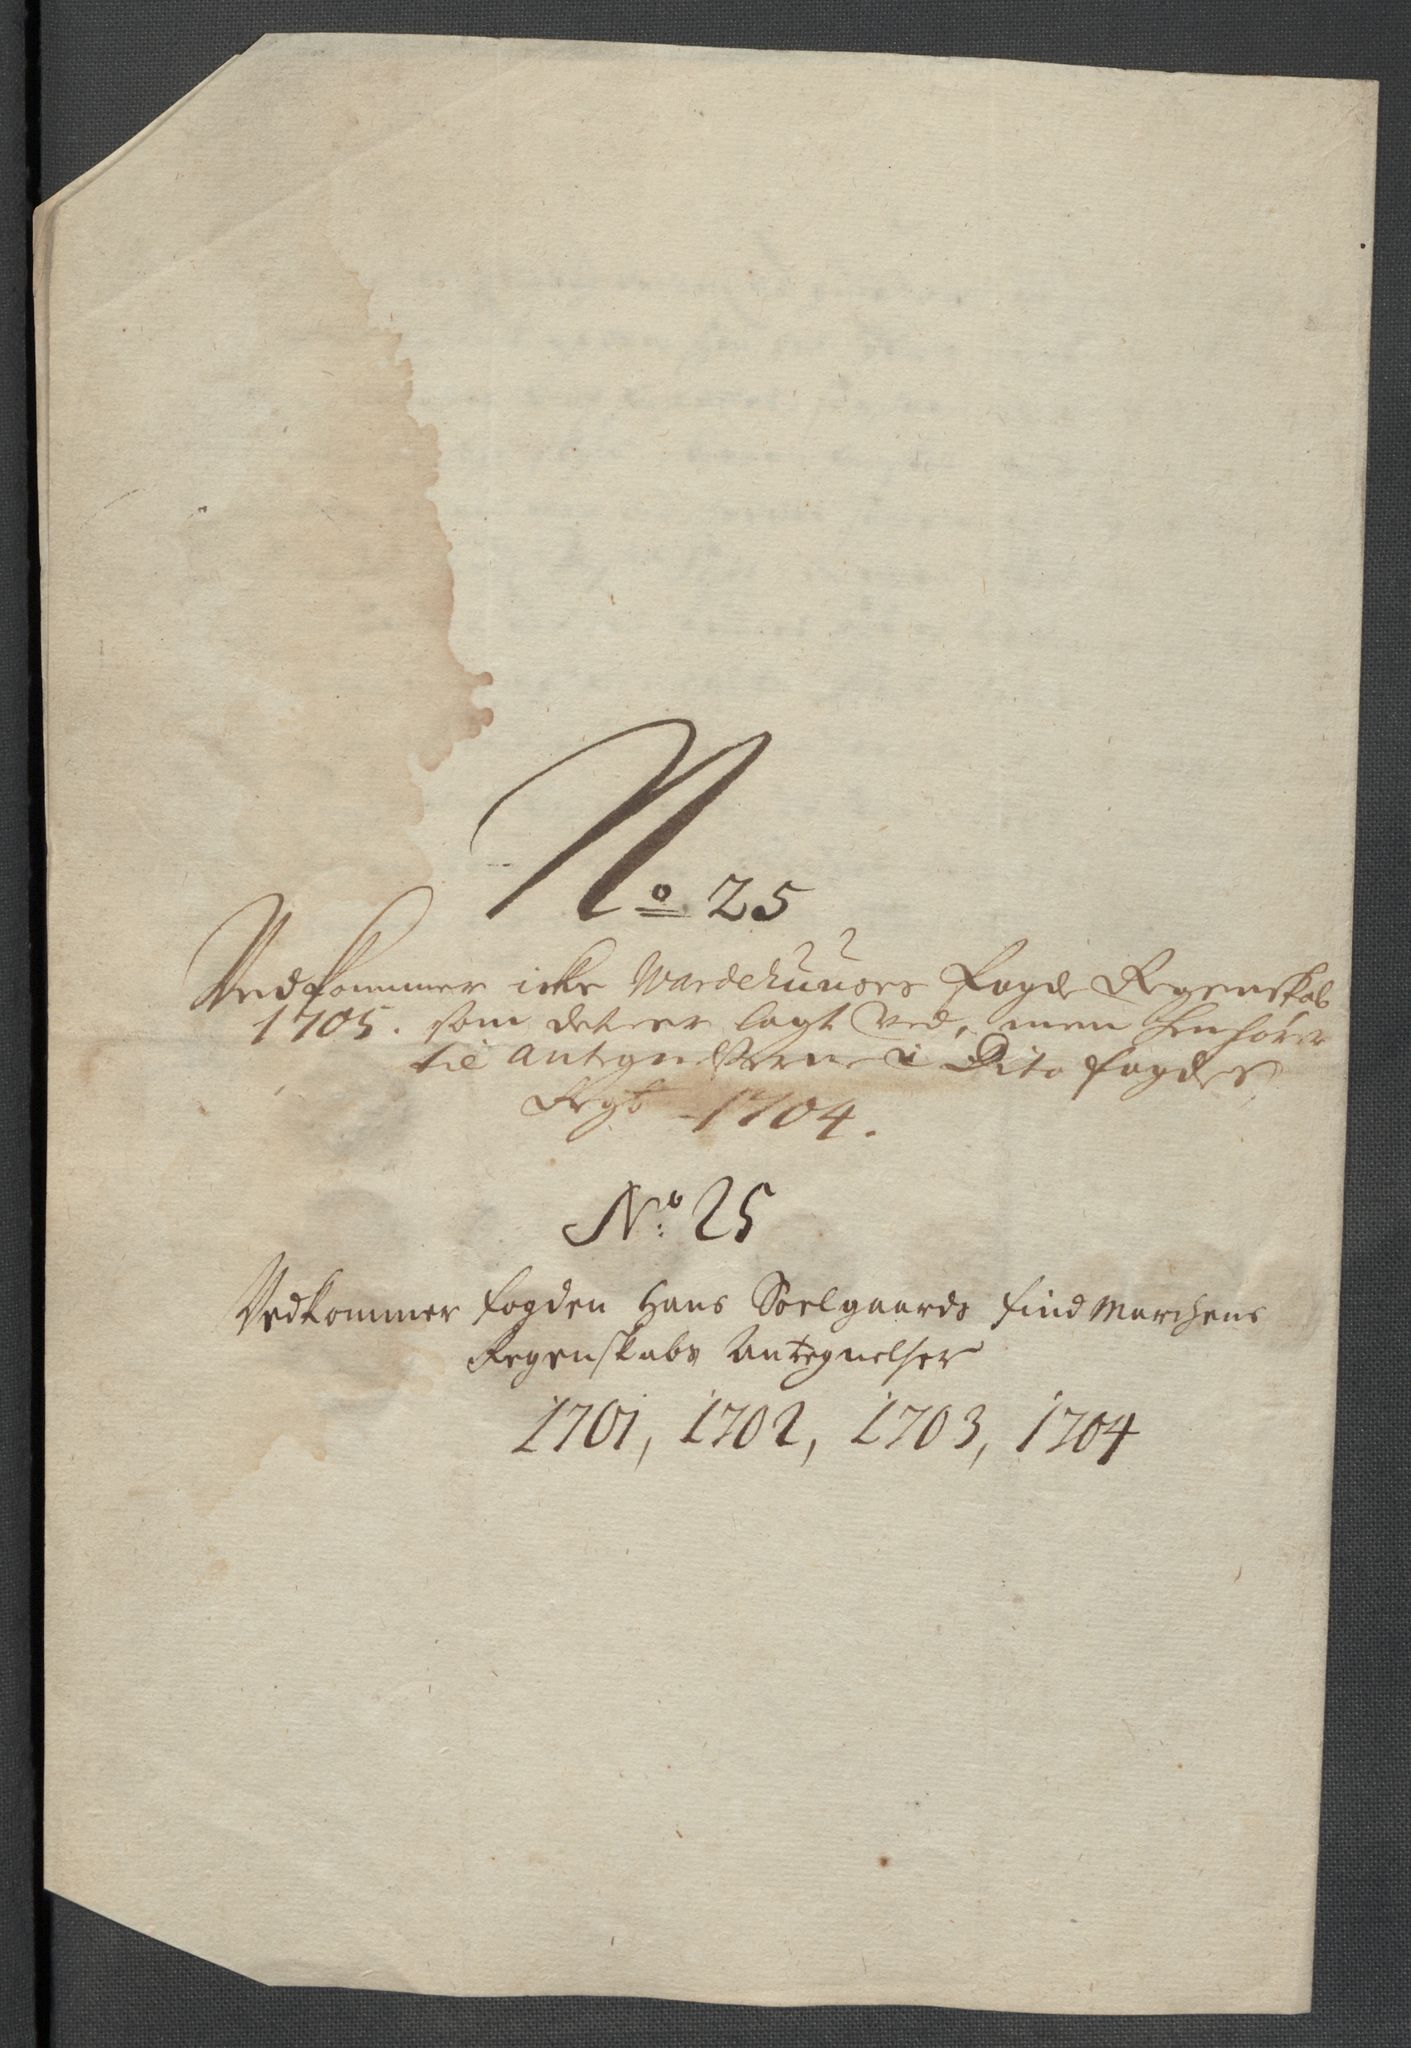 No 25
Vedkommer icke Wardehuuses fogde Regenskab
1705. som det er lagt ved, men henhörer
til Antegnelserne i Dito fogdes
Regb 1704.
No: 25
Vedkommer fogden Hans Soelgaards findmarchens
Regenskabs Antegnelser
1701, 1702, 1703, 1704